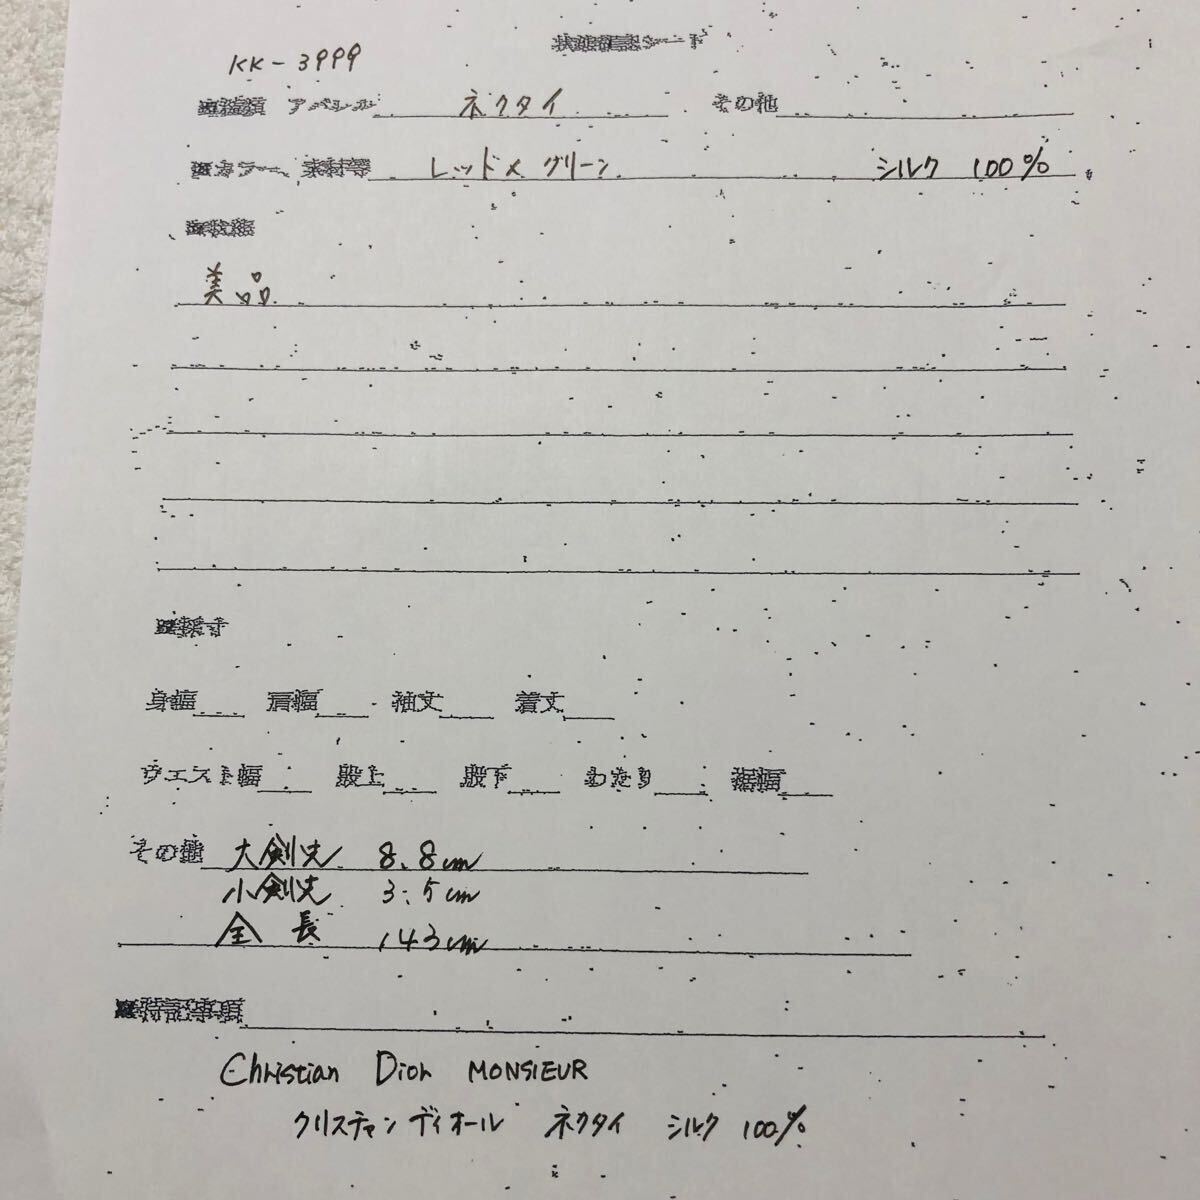 状態確認シート
KK-3999
■種類 アパレル ネクタイ その他
■カラー、素材等 レッド×グリーン シルク 100%
■状態
美品
■採寸
身幅 肩幅 袖丈 着丈
ウエスト幅 股上 股下 わたり 裾幅
その他 大剣先 8.8cm
小剣先 3.5cm
全長 143cm
■特記事項
Christian Dior MONSIEUR
クリスチャンディオール ネクタイ シルク 100%